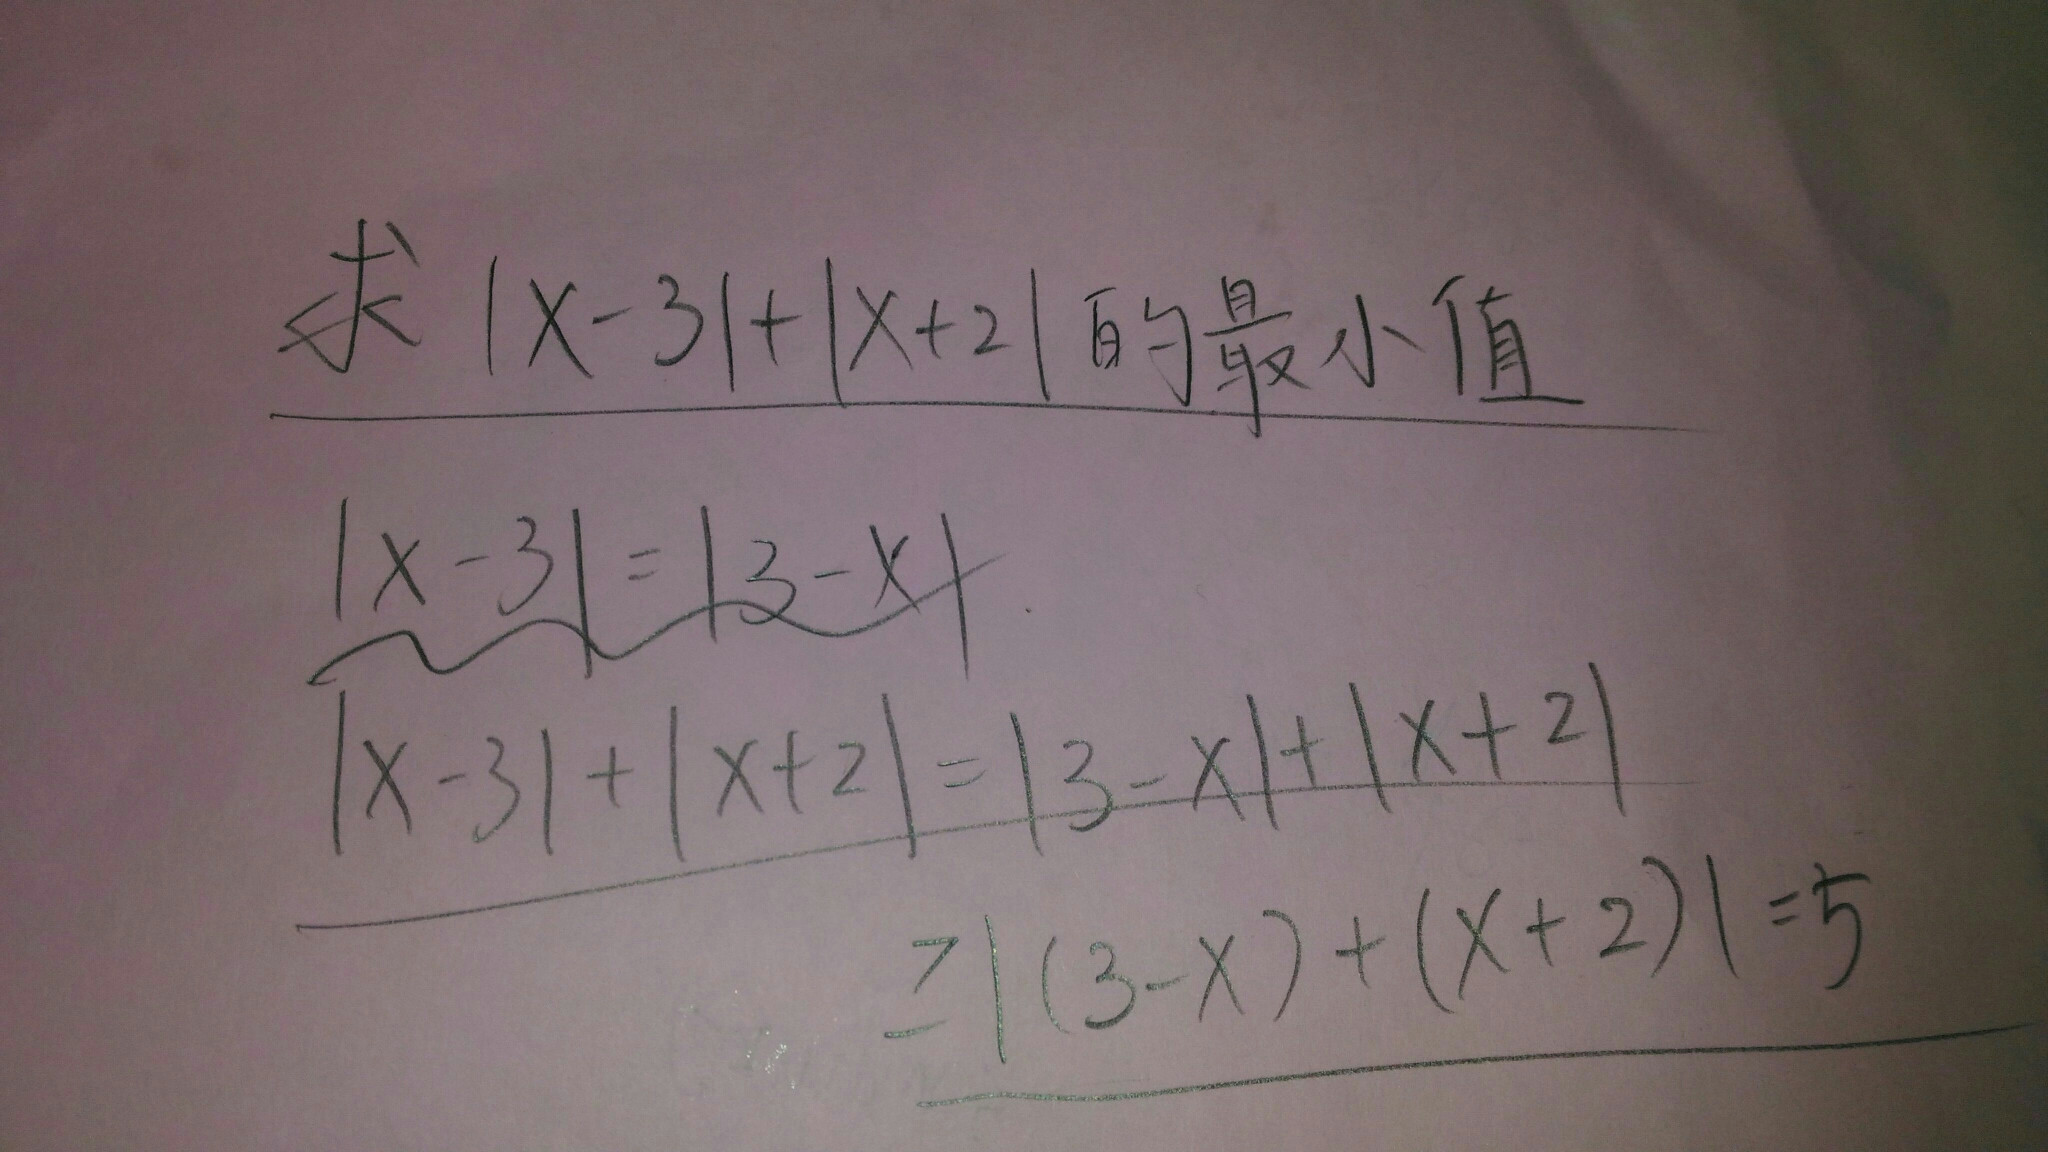 求|x-3|+|x+2|的最小值
|x-3|=|3-x|.
|x-3|+|x+2|=|3-x|+|x+2|
≥|(3-x)+(x+2)|=5